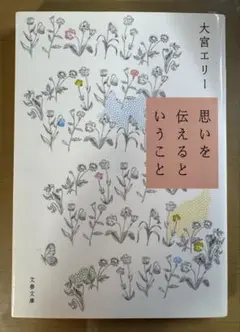 大宮エリー
思いを
伝えると
いうこと
文春文庫